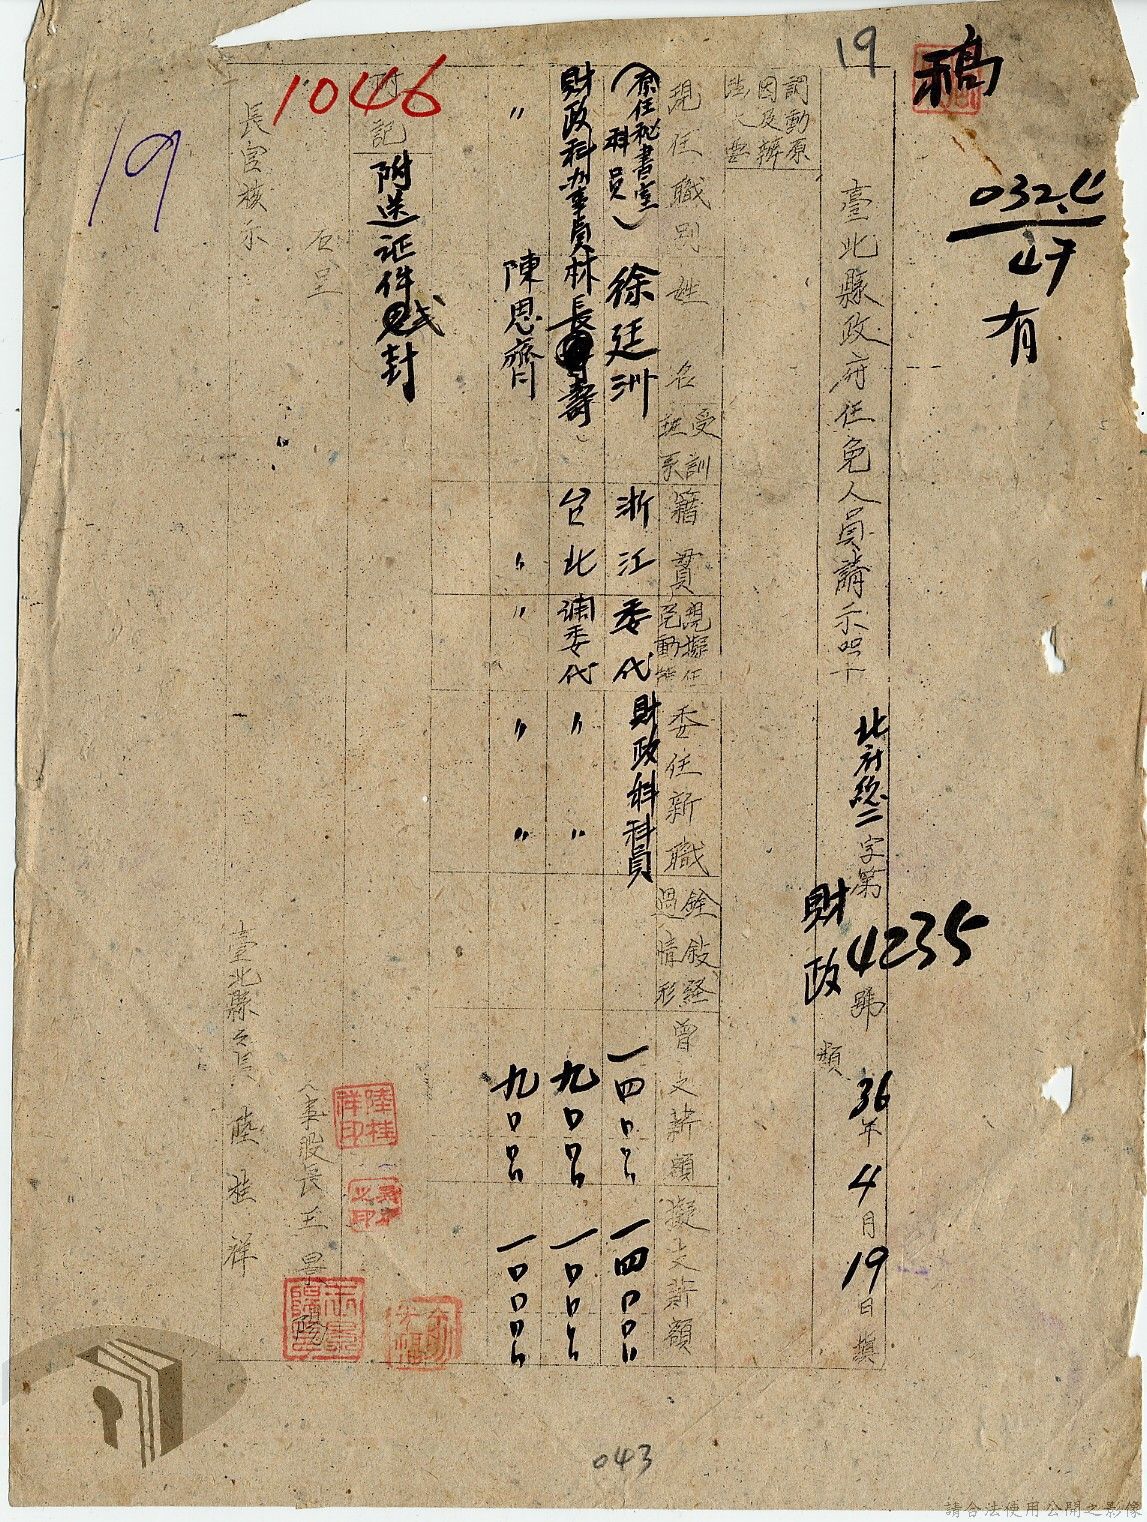 稿
19
032.4
47
有
臺北縣政府任免人員請示單
北府總二字第4235號
財政類
36年4月19日填
調動原因及辦法大要
現任職別
姓名
受訓班系
籍貫
現擬任免動態
委任新職
銓敍経過情形
曾支薪額
擬支薪額
(原任秘書室科員)
徐廷洲
浙江
委代
財政科科員
一四〇.〇〇
一四〇.〇〇
財政科办事員
林長壽
台北
調委代
〃
〃
九〇.〇〇
一〇〇.〇〇
〃
陳思齊
〃
〃
〃
〃
九〇.〇〇
一〇〇.〇〇
附記
附送証件弍封
右呈
長官核示
臺北縣縣長 陸桂祥
(人事股長王景陽
陸桂祥印
1046
19
043
請合法使用公開之影像